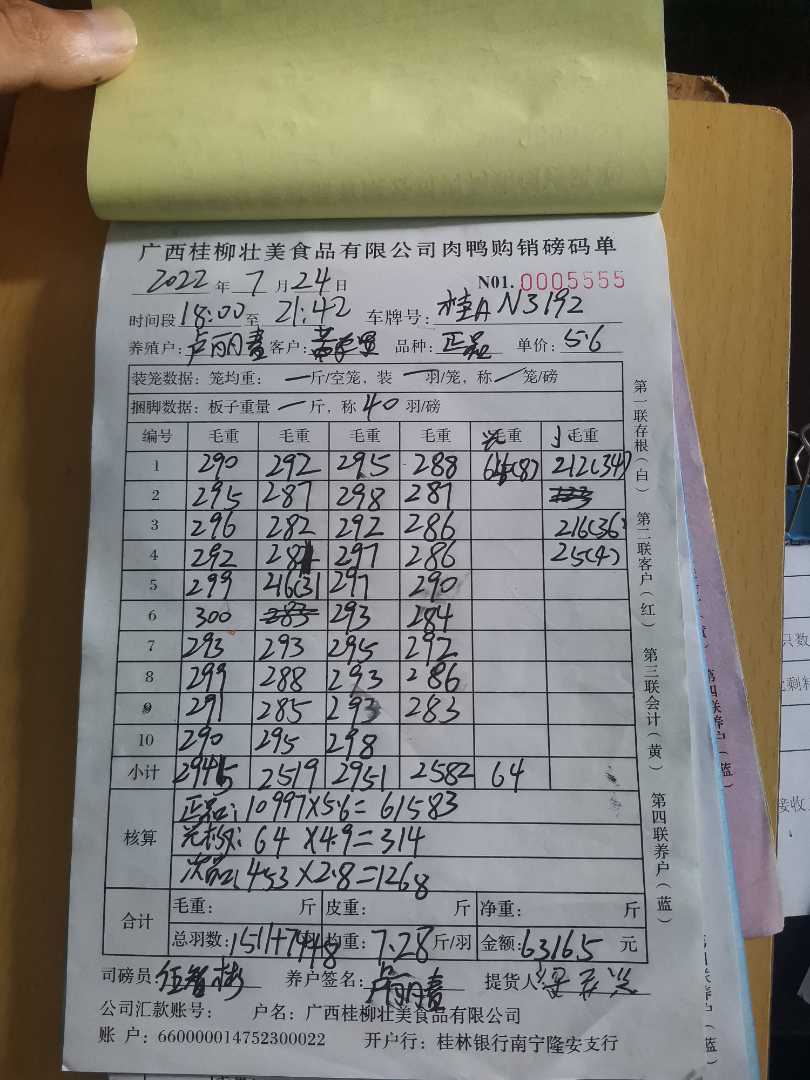 广西桂柳壮美食品有限公司肉鸭购销磅码单
2022 年 7 月 24 日 N01. 0005555
时间段 18:00 至 21:42 车牌号: 桂A N3192
养殖户: 卢丽春 客户: 品种: 正品 单价: 5.6
装笼数据: 笼均重: 一 斤/空笼, 装 一 羽/笼, 称 / 笼/磅
捆脚数据: 板子重量 一 斤, 称 40 羽/磅
编号 毛重 毛重 毛重 毛重 毛重 小 毛重
1 290 292 295 288 64(8) 212(34)
2 295 287 298 287
3 296 282 292 286 216(36)
4 292 281 297 286 25(4)
5 299 216(31 297 290
6 300 283 293 284
7 293 293 295 292
8 299 288 293 286
9 291 285 293 283
10 290 295 298
小计 2945 2519 2951 2582 64
核算
正品: 10997×5.6=61583
64×4.9=314
次品: 453×2.8=1268
合计
毛重: 斤 皮重: 斤 净重: 斤
总羽数: 1511+79+48 羽 均重: 7.28 斤/羽 金额: 63165 元
司磅员: 伍智彬 养户签名: 卢丽春 提货人:
公司汇款账号: 户名: 广西桂柳壮美食品有限公司
账 户: 660000014752300022 开户行: 桂林银行南宁隆安支行
第一联存根(白) 第二联客户(红) 第三联会计(黄) 第四联养户(蓝)
只数
接收